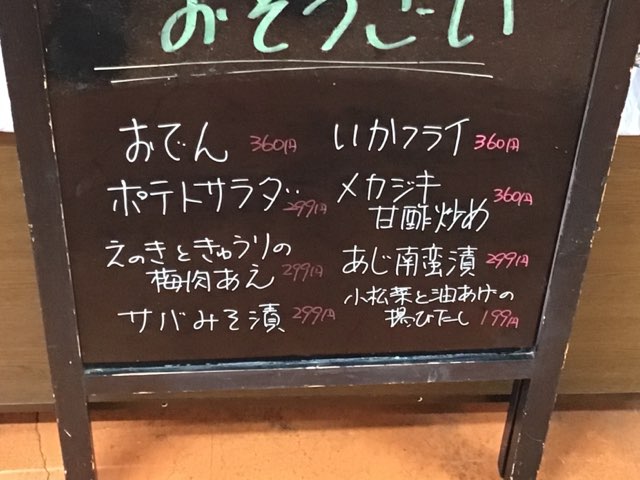 おそうざい
おでん 360円
ポテトサラダ 299円
えのきときゅうりの
梅肉あえ 299円
サバみそ漬 299円
いかフライ 360円
メカジキ
甘酢炒め 360円
あじ南蛮漬 299円
小松菜と油あげの
揚びたし 199円